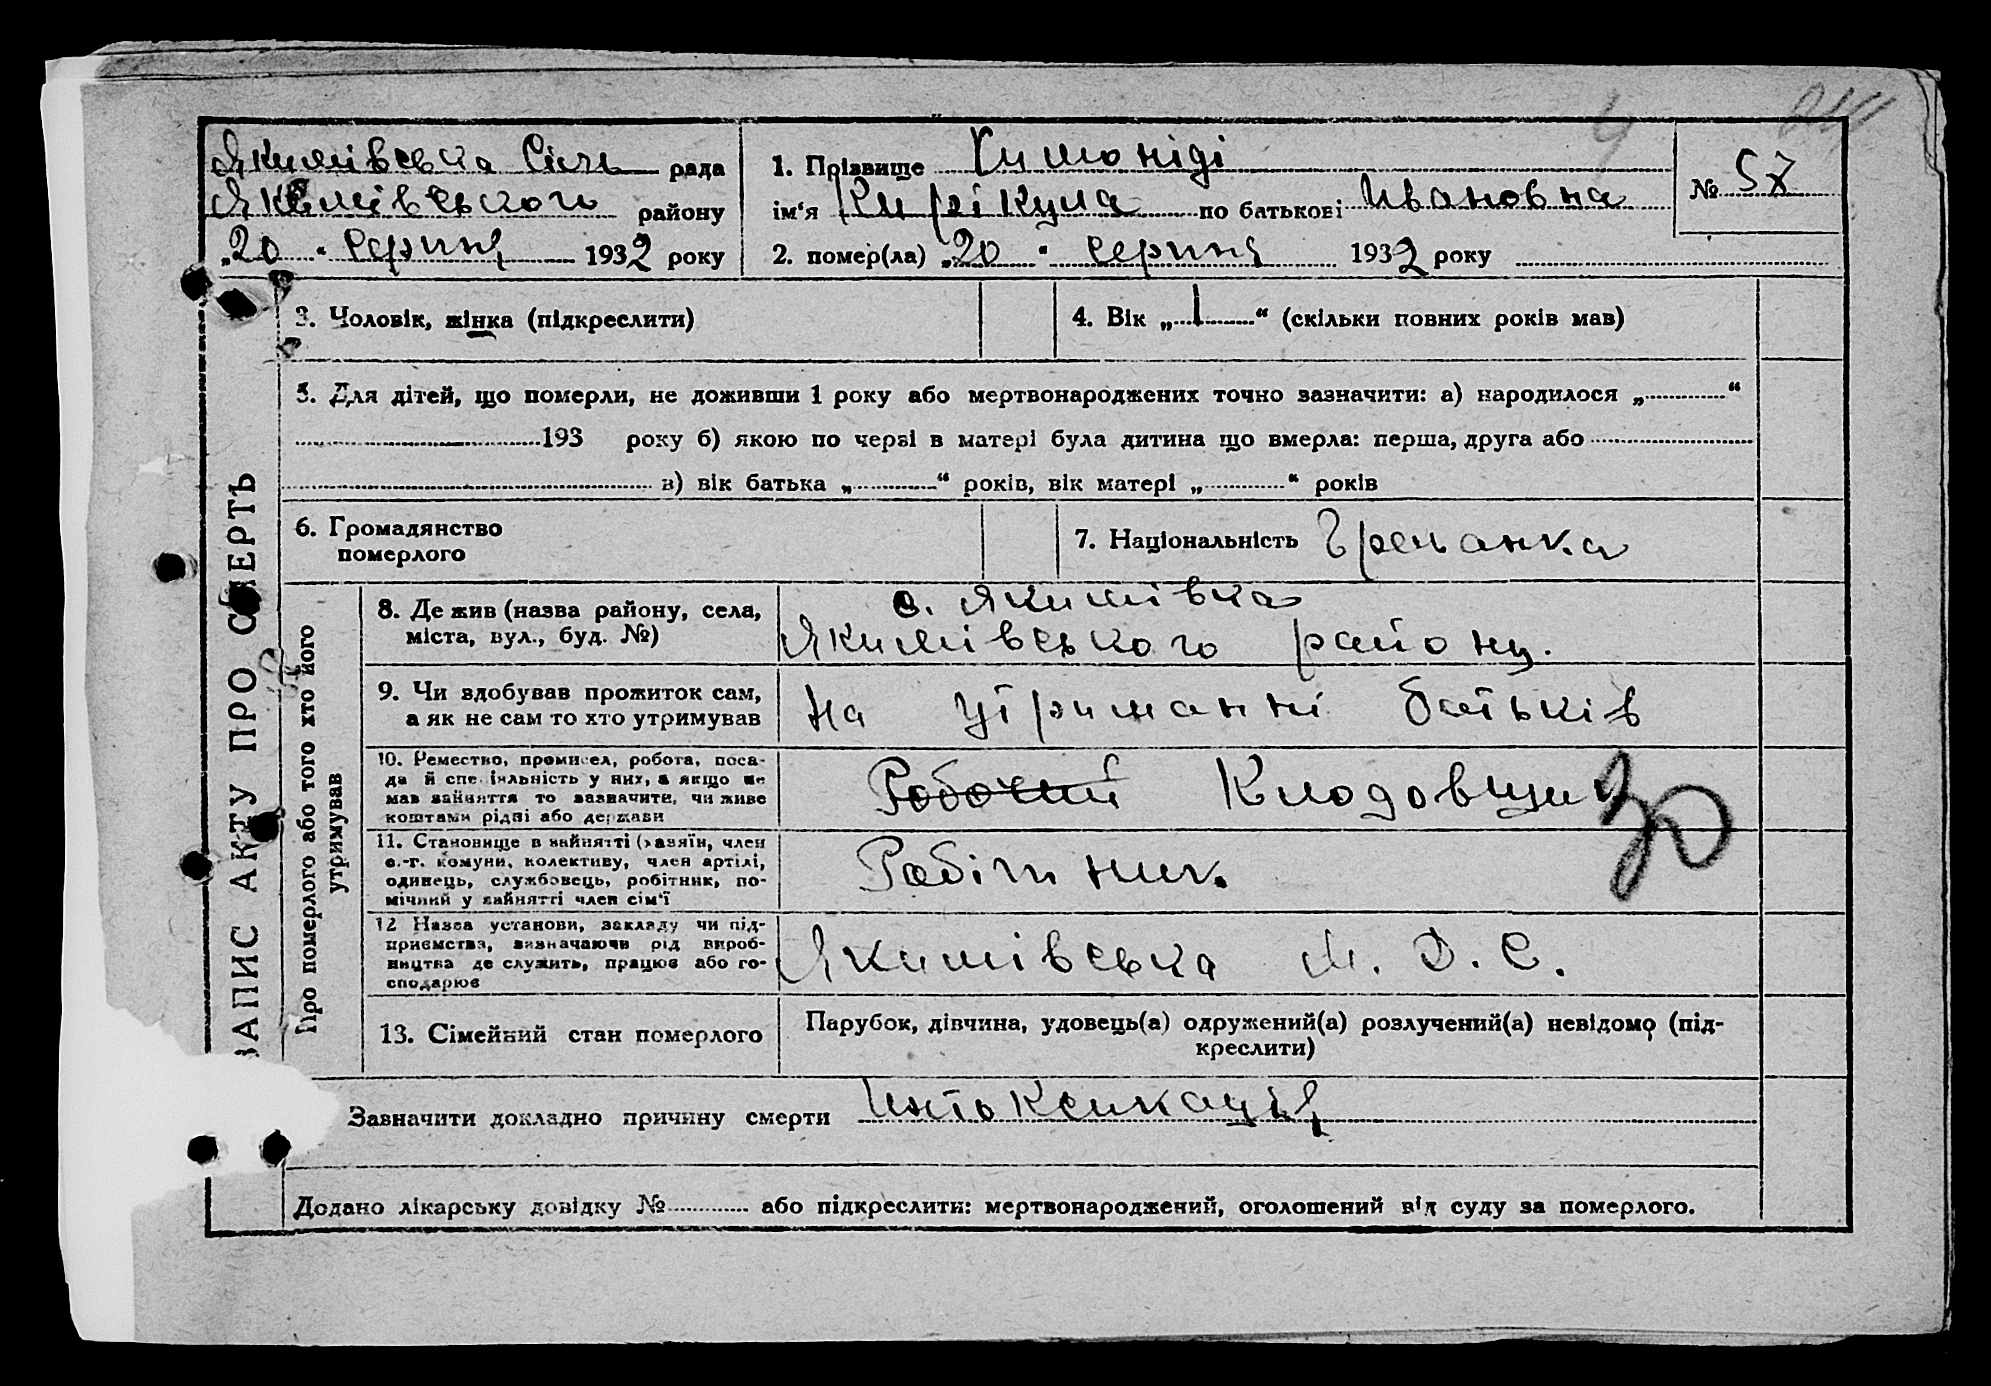 Якимівська Сіль рада
Якимівського району
„20" серпня 1932 року
1. Прізвище Химоніді
ім'я Кирікула по батькові Ивановна
№ 57
2. помер(ла) „20" серпня 1932 року
3. Чоловік, жінка (підкреслити)
4. Вік „1" (скільки повних років мав)
5. Для дітей, що померли, не доживши 1 року або мертвонароджених точно зазначити: а) народилося „............"
193 року б) якою по черзі в матері була дитина що вмерла: перша, друга або
в) вік батька „............" років, вік матері „............" років
6. Громадянство
померлого
7. Національність Гречанка
ЗАПИС АКТУ ПРО СМЕРТЬ
Про померлого або того хто його
утримував
8. Де жив (назва району, села,
міста, вул., буд. №)
с. Якимівка
Якимівського району.
9. Чи здобував прожиток сам,
а як не сам то хто утримував
На утриманні батьків
10. Ремество, промисел, робота, поса-
да й спеціяльність у них, а якщо не
мав зайняття то зазначити, чи живе
коштами рідні або держави
Робочий Кладовщик
11. Становище в зайнятті (хазяїн, член
с.-г. комуни, колективу, член артілі,
одинець, службовець, робітник, по-
мічний у зайнятті член сім'ї
Робітник.
12 Назва установи, закладу чи під-
приємства, визначаючи рід вироб-
ництва де служить, працює або го-
сподарює
Якимівська М. Т. С.
13. Сімейний стан померлого
Парубок, дівчина, удовець(а) одружений(а) розлучений(а) невідомо (під-
креслити)
Зазначити докладно причину смерти Интоксикація
Додано лікарську довідку №............ або підкреслити: мертвонароджений, оголошений від суду за померлого.